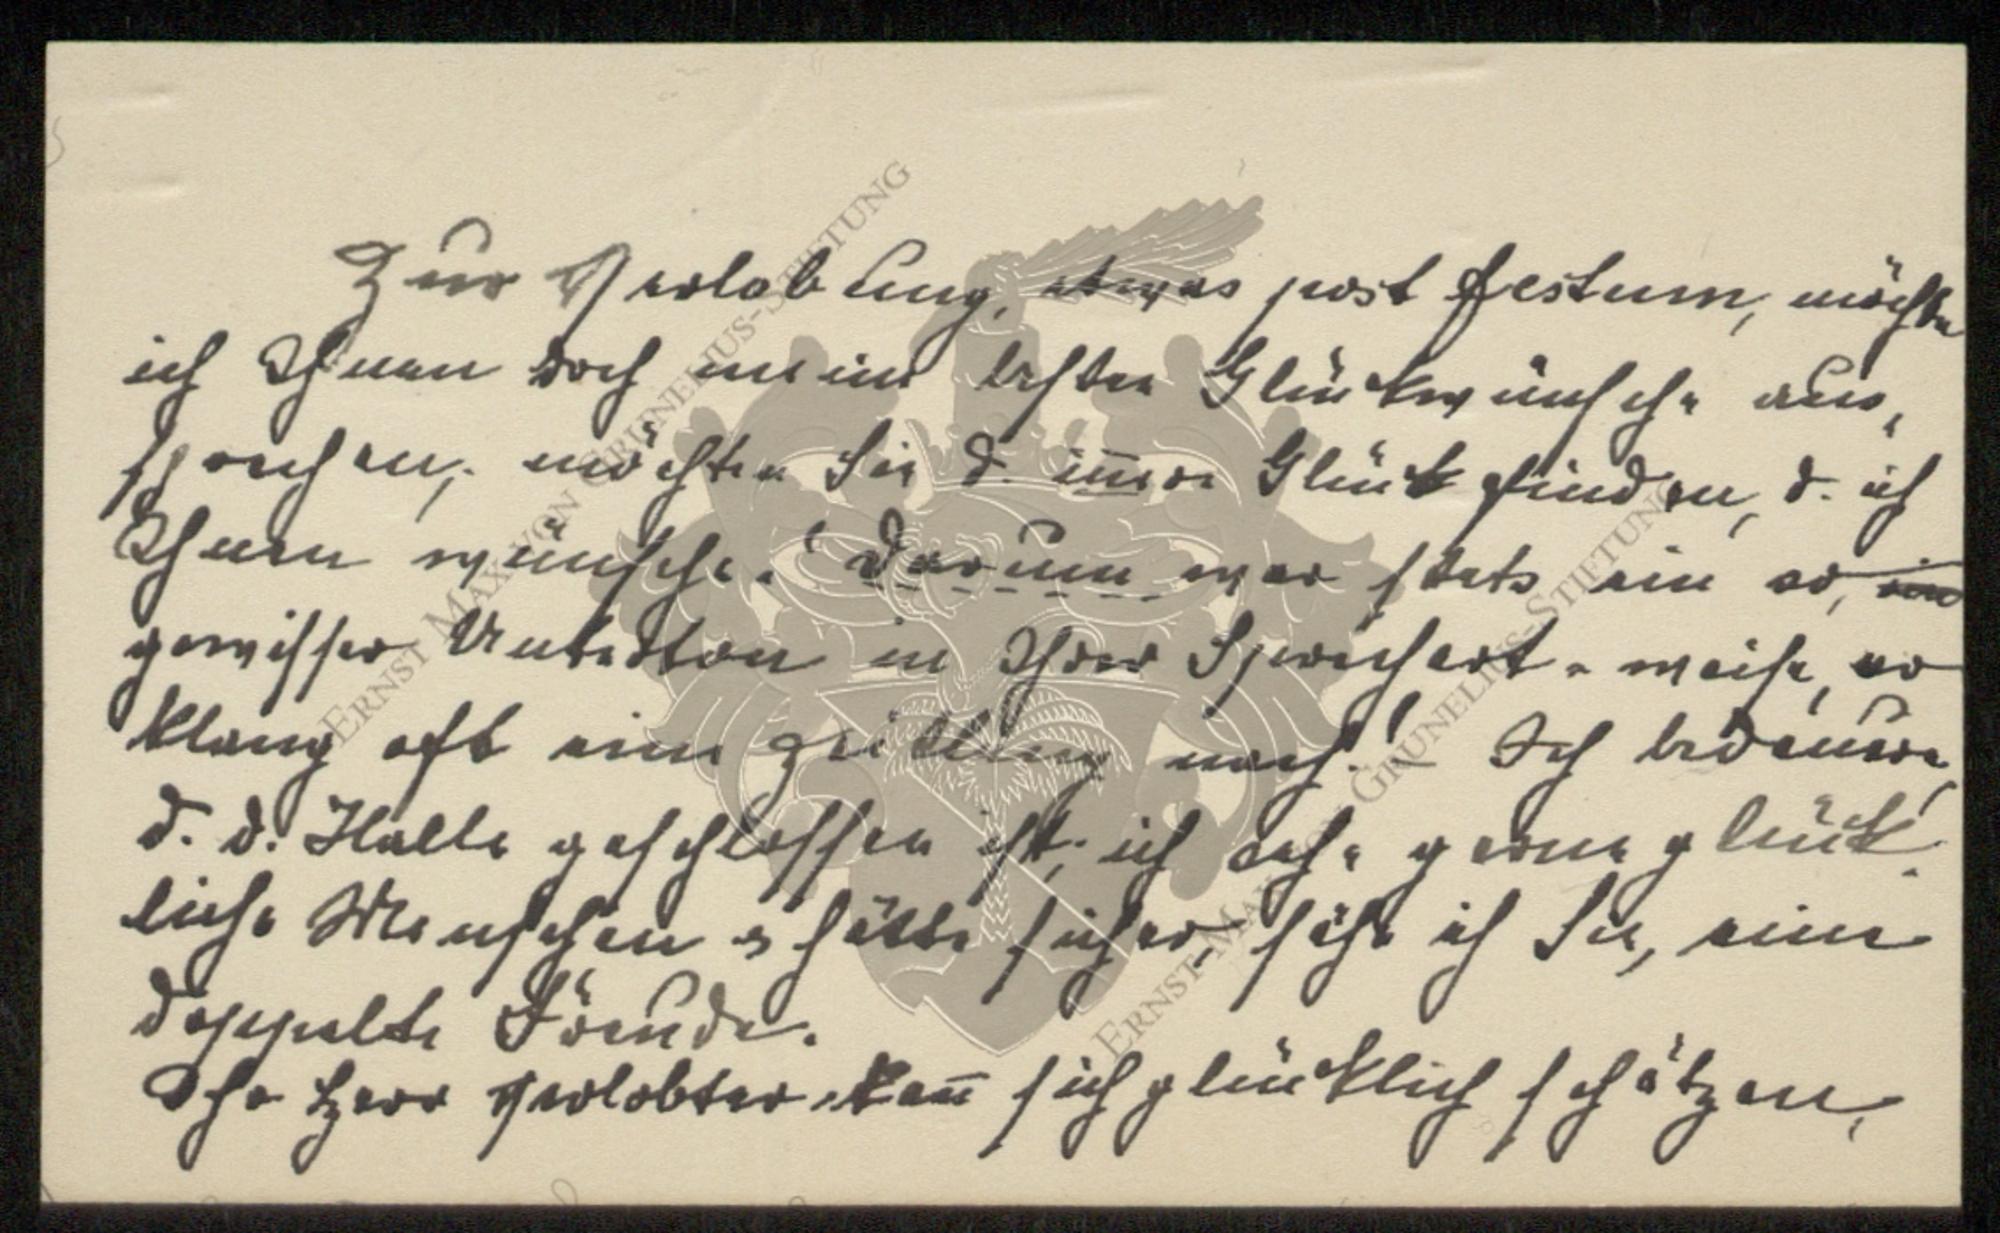 Zur Verlobung, etwas post festum, möchte
ich Ihnen doch meine besten Glückwünsche aus,
sprechen; möchten Sie d. innere Glück finden, d. ich
Ihnen wünsche! Darum war stets ein so,
gewisser Unterton in Ihrer Sprechart u. weise, so
klang oft eine nach! Ich bedauere,
d. d. Halle geschlossen ist; ich sehe gerne glück-
liche Menschen u hätte sicher sähe ich Sie, eine
doppelte Freude.
Ihr Herr Verlobter kan̄ sich glücklich schätzen,
ERNST MAX VON GRUNELIUS-STIFTUNG
ERNST-MAX VON GRUNELIUS-STIFTUNG